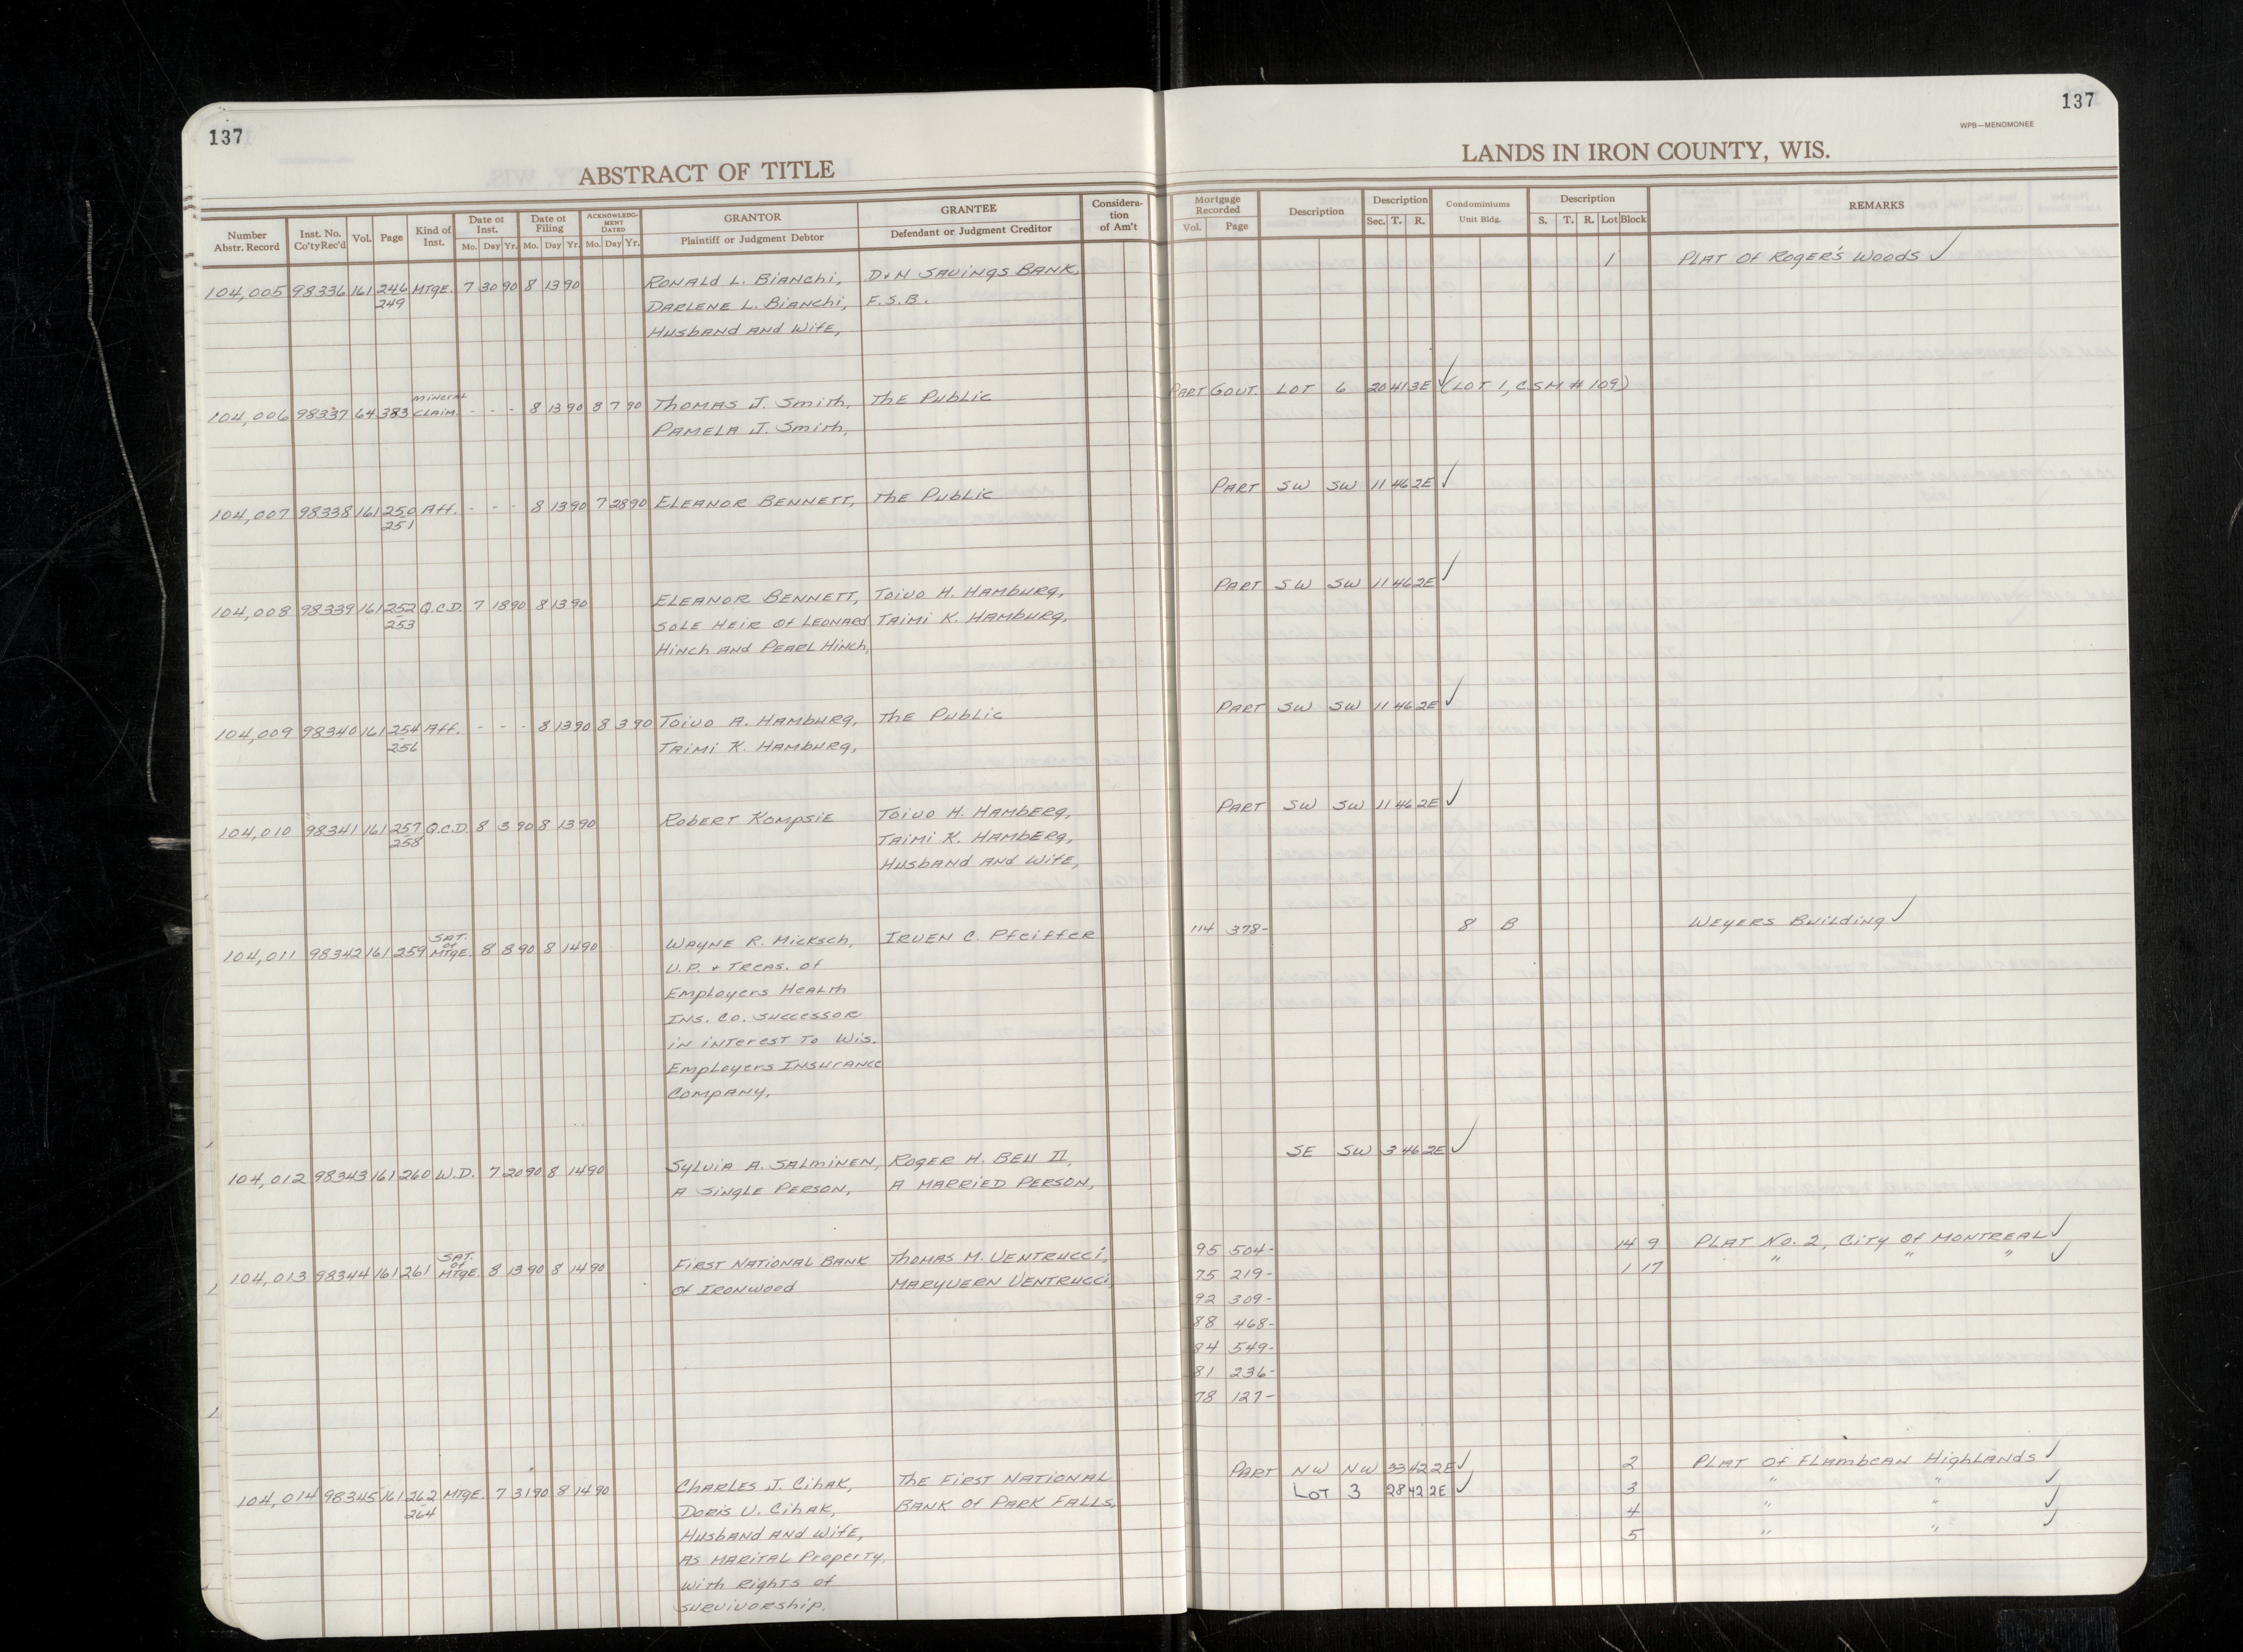 137
ABSTRACT OF TITLE
Number Abstr. Record
Inst. No. Co'ty Rec'd
Vol.
Page
Kind of Inst.
Date of Inst.
Mo. Day Yr.
Date of Filing
Mo. Day Yr.
ACKNOWLEDG-MENT DATED
Mo. Day Yr.
GRANTOR
Plaintiff or Judgment Debtor
GRANTEE
Defendant or Judgment Creditor
Considera-tion of Am't
104,005 98336 161 246 MTGE. 7 30 90 8 13 90 RONALD L. BIANCHI, D+N SAVINGS BANK,
249 DARLENE L. BIANCHI, F.S.B.
HUSBAND AND WIFE,
MINERAL
104,006 98337 64 383 CLAIM. - - - 8 13 90 8 7 90 THOMAS J. SMITH, THE PUBLIC
PAMELA J. SMITH,
104,007 98338 161 250 AFF. - - - 8 13 90 7 28 90 ELEANOR BENNETT, THE PUBLIC
251
104,008 98339 161 252 Q.C.D. 7 18 90 8 13 90 ELEANOR BENNETT, TOIVO H. HAMBURG,
253 SOLE HEIR OF LEONARD TAIMI K. HAMBURG,
HINCH AND PEARL HINCH,
104,009 98340 161 254 AFF. - - - 8 13 90 8 3 90 TOIVO A. HAMBURG, THE PUBLIC
256 TAIMI K. HAMBURG,
104,010 98341 161 257 Q.C.D. 8 3 90 8 13 90 ROBERT KOMPSIE TOIVO H. HAMBERG,
258 TAIMI K. HAMBERG,
HUSBAND AND WIFE,
SAT. OF
104,011 98342 161 259 MTGE. 8 8 90 8 14 90 WAYNE R. MICKSCH, IRVEN C. PFEIFFER
V.P. + TREAS. OF
EMPLOYERS HEALTH
INS. CO. SUCCESSOR
IN INTEREST TO WIS.
EMPLOYERS INSURANCE
COMPANY,
104,012 98343 161 260 W.D. 7 20 90 8 14 90 SYLVIA A. SALMINEN, ROGER H. BELL II,
A SINGLE PERSON, A MARRIED PERSON,
SAT. OF
104,013 98344 161 261 MTGE. 8 13 90 8 14 90 FIRST NATIONAL BANK THOMAS M. VENTRUCCI,
OF IRONWOOD MARYVERN VENTRUCCI,
104,014 98345 161 262 MTGE. 7 31 90 8 14 90 CHARLES J. CIHAK, THE FIRST NATIONAL
264 DORIS V. CIHAK, BANK OF PARK FALLS,
HUSBAND AND WIFE,
AS MARITAL PROPERTY
WITH RIGHTS OF
SURVIVORSHIP.
137
WPB—MENOMONEE
LANDS IN IRON COUNTY, WIS.
Mortgage Recorded
Vol. Page
Description
Description
Sec. T. R.
Condominiums
Unit Bldg.
Description
S. T. R. Lot Block
REMARKS
1 PLAT OF ROGER'S WOODS ✓
PART GOVT. LOT 6 20 41 3E ✓ (LOT 1, C S M # 109)
PART SW SW 11 46 2E ✓
PART SW SW 11 46 2E ✓
PART SW SW 11 46 2E ✓
PART SW SW 11 46 2E ✓
114 378- 8 B WEYERS BUILDING ✓
SE SW 3 46 2E ✓
95 504- 14 9 PLAT NO. 2, CITY OF MONTREAL ✓
75 219- 1 17 " " " ✓
92 309-
88 468-
84 549-
81 236-
78 127-
PART NW NW 33 42 2E ✓ 2 PLAT OF FLAMBEAU HIGHLANDS ✓
LOT 3 28 42 2E ✓ 3 " " ✓
4 " " ✓
5 " " ✓